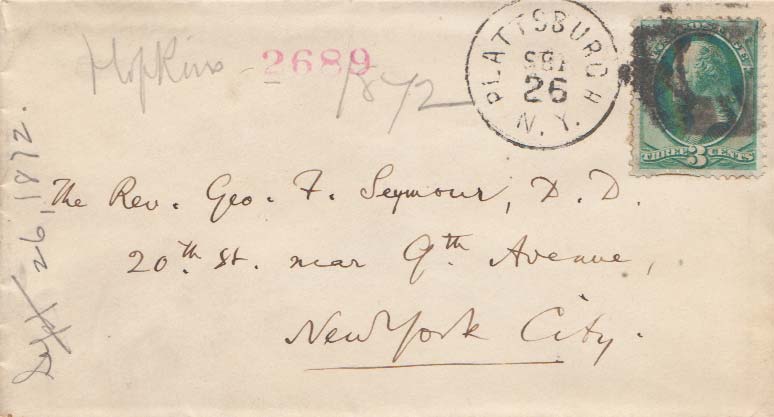 Hopkins - 2689
1872
PLATTSBURGH
SEP
26
N.Y.
THREE 3 CENTS
The Rev. Geo. F. Seymour, D.D.
20th St. near 9th Avenue,
New York City.
Sept 26, 1872.